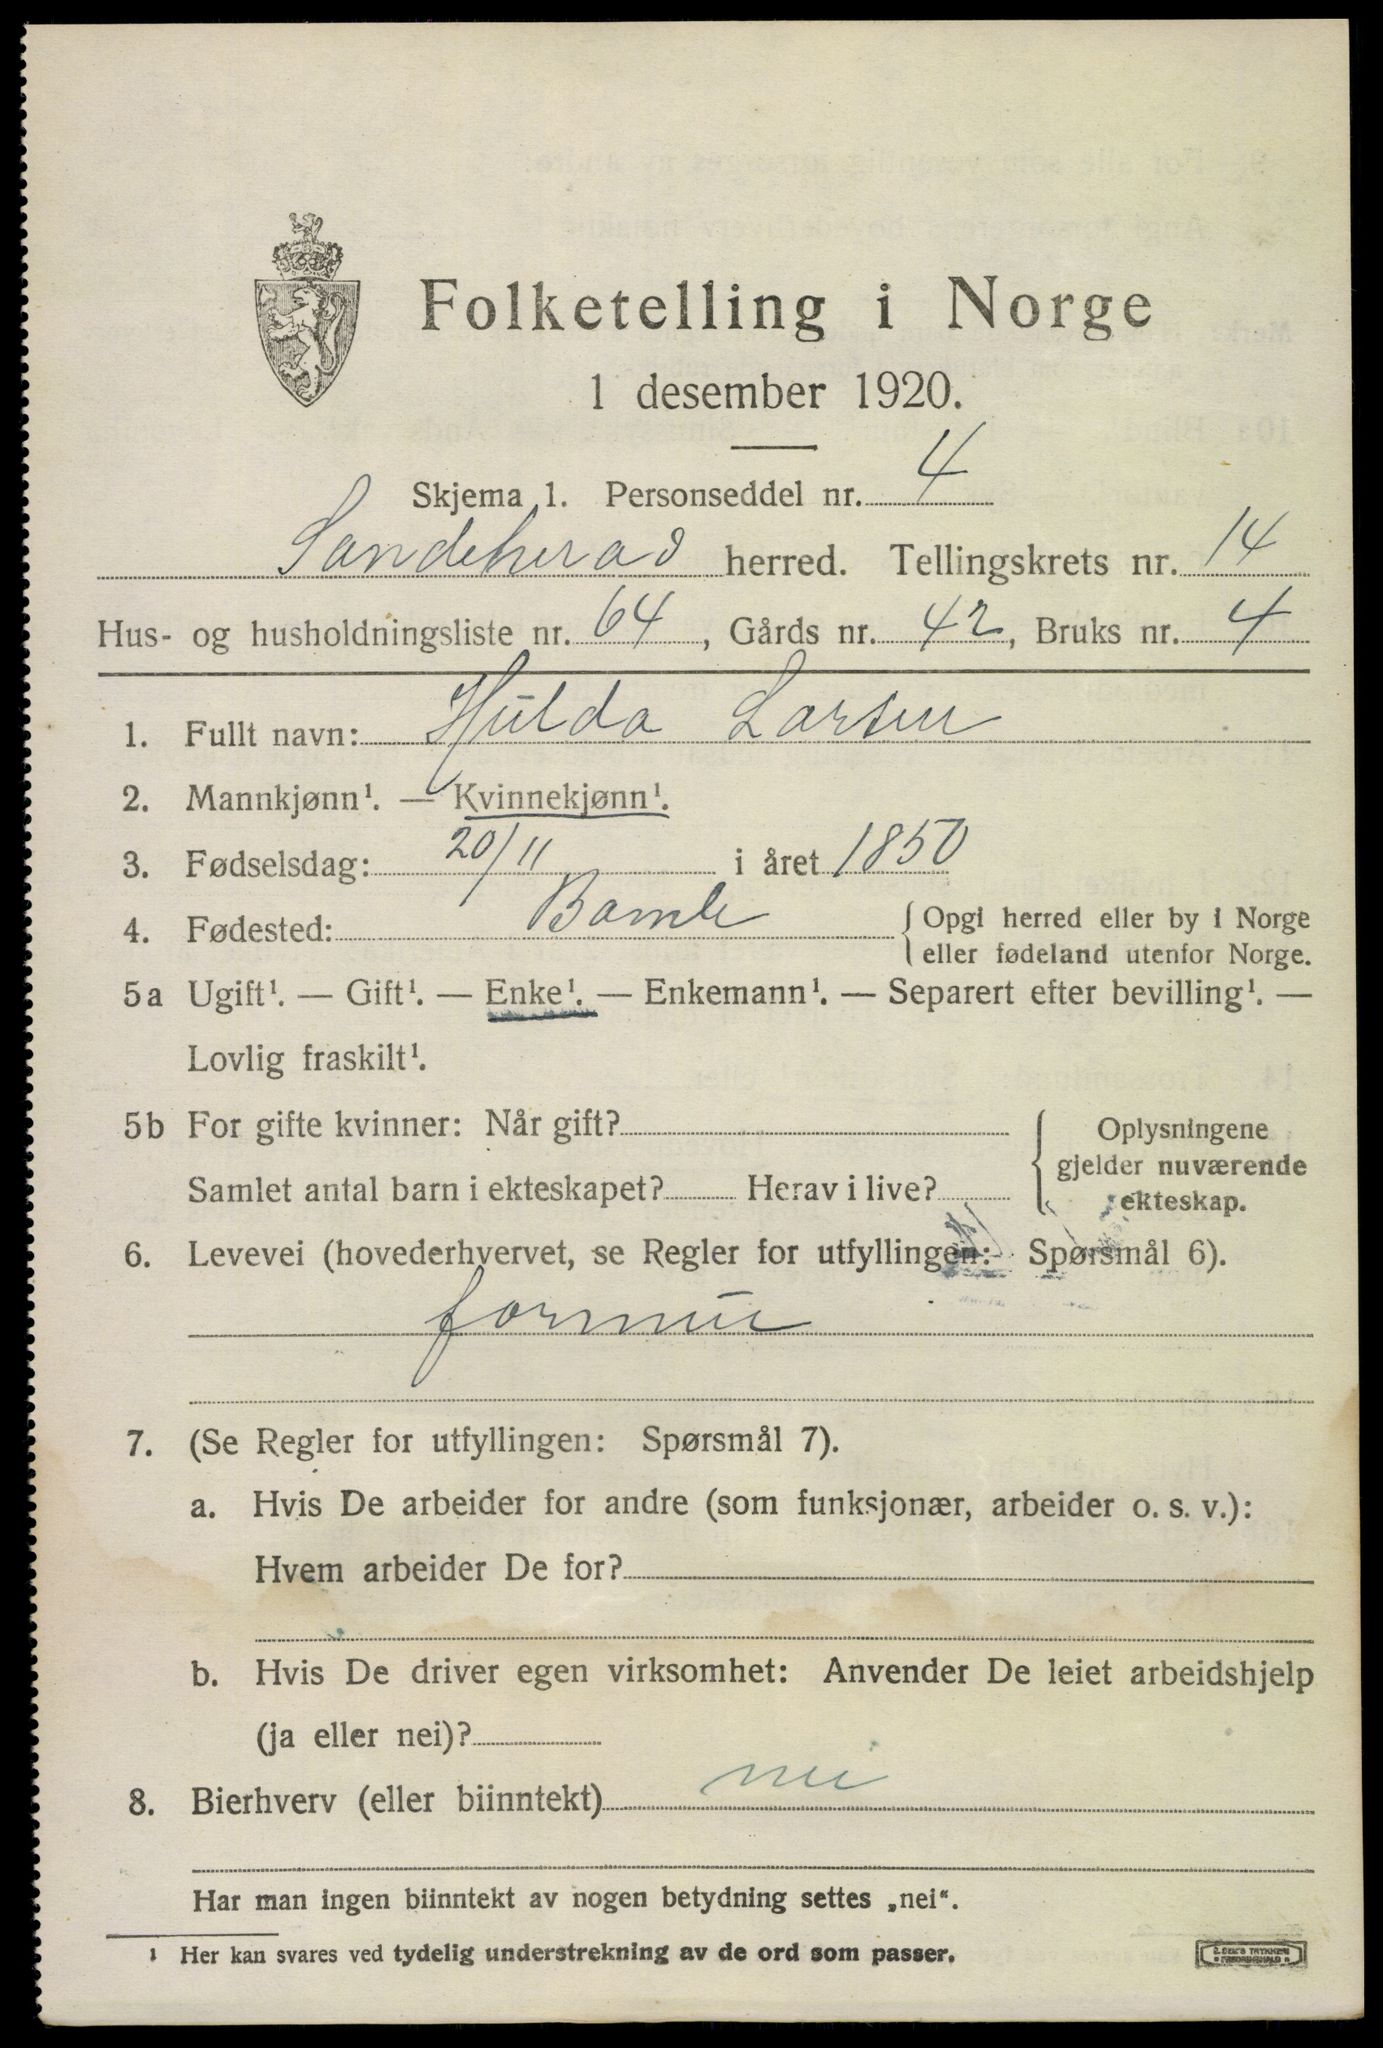 Folketelling i Norge
1 desember 1920.
Skjema 1. Personseddel nr. 4
Sandeherad herred. Tellingskrets nr. 14
Hus- og husholdningsliste nr. 64, Gårds nr. 42, Bruks nr. 4
1. Fullt navn: Hulda Larsen
2. Mannkjønn¹. — Kvinnekjønn¹.
3. Fødselsdag: 20/11 i året 1850
4. Fødested: Bamle {Opgi herred eller by i Norge
eller fødeland utenfor Norge.
5a Ugift¹. — Gift¹. — Enke¹. — Enkemann¹. — Separert efter bevilling¹. —
Lovlig fraskilt¹.
5b For gifte kvinner: Når gift?
Samlet antal barn i ekteskapet? Herav i live?
{Oplysningene
gjelder nuværende
ekteskap.
6. Levevei (hovederhvervet, se Regler for utfyllingen: Spørsmål 6).
formue
7. (Se Regler for utfyllingen: Spørsmål 7).
a. Hvis De arbeider for andre (som funksjonær, arbeider o. s. v.):
Hvem arbeider De for?
b. Hvis De driver egen virksomhet: Anvender De leiet arbeidshjelp
(ja eller nei)?
8. Bierhverv (eller biinntekt) nei
Har man ingen biinntekt av nogen betydning settes „nei“.
¹ Her kan svares ved tydelig understrekning av de ord som passer.